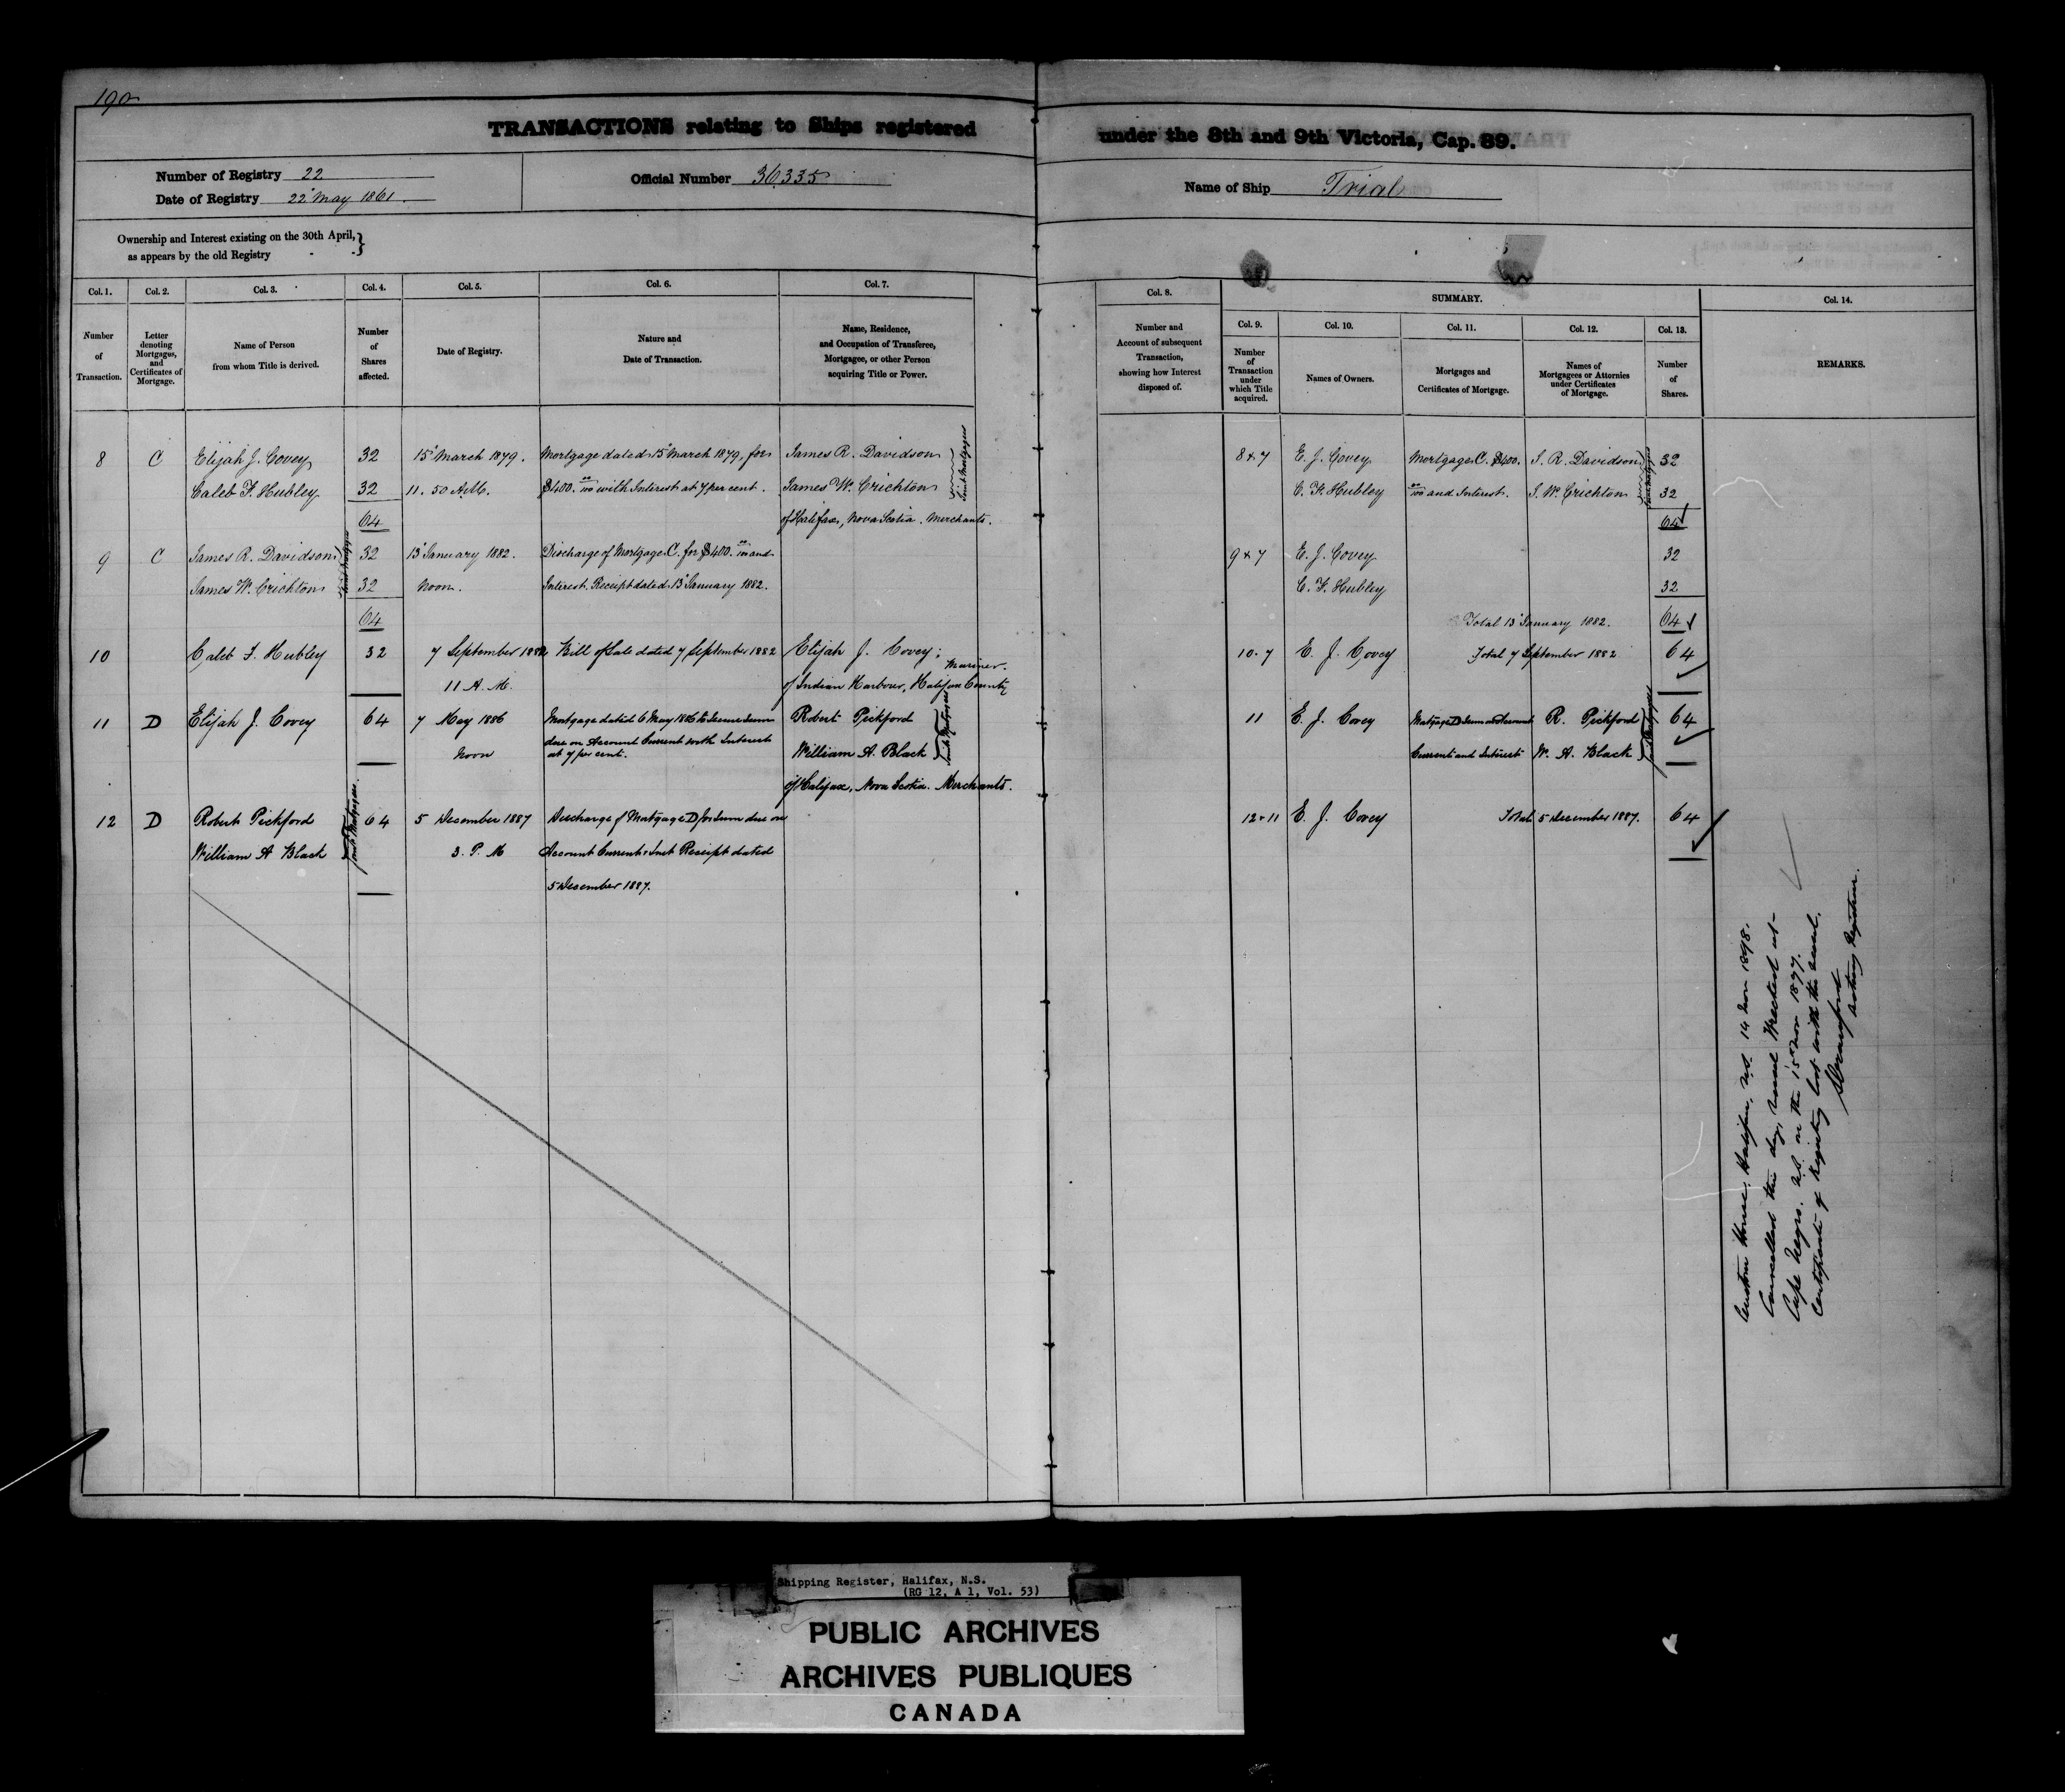 190
TRANSACTIONS relating to Ships registered under the 8th and 9th Victoria, Cap. 89.
Number of Registry 22
Date of Registry 22 May 1861.
Official Number 36335
Name of Ship Trial
Ownership and Interest existing on the 30th April,
as appears by the old Registry
Col. 1. Col. 2. Col. 3. Col. 4. Col. 5. Col. 6. Col. 7.
Number of Transaction.
Letter denoting Mortgages, and Certificates of Mortgage.
Name of Person from whom Title is derived.
Number of Shares affected.
Date of Registry.
Nature and Date of Transaction.
Name, Residence, and Occupation of Transferee, Mortgagee, or other Person acquiring Title or Power.
8 C Elijah J. Covey 32 15 March 1879. Mortgage dated 15 March 1879, for James R. Davidson
Caleb F. Hubley 32 11.50 A.M. $400. 00/100 with Interest at 7 per cent. James W. Crichton
Joint Mortgagees
64 of Halifax, Nova Scotia. Merchants.
9 C James R. Davidson 32 13 January 1882. Discharge of Mortgage C. for $400. 00/100 and
James W. Crichton 32 Noon. Interest. Receipt dated 13 January 1882.
Joint Mortgagees
64
10 Caleb F. Hubley 32 7 September 1882 Bill of Sale dated 7 September 1882 Elijah J. Covey, Mariner.
11 A.M. of Indian Harbour, Halifax County
11 D Elijah J. Covey 64 7 May 1886 Mortgage dated 6 May 1886 to secure sum Robert Pickford
Noon due on Account Current with Interest William A. Black
at 7 per cent.
Joint Mortgagees
of Halifax, Nova Scotia. Merchants.
12 D Robert Pickford 64 5 December 1887 Discharge of Mortgage D for sum due on
William A Black 3. P. M Account Current & Int Receipt dated
Joint Mortgagees
5 December 1887.
Col. 8. SUMMARY. Col. 14.
Col. 9. Col. 10. Col. 11. Col. 12. Col. 13.
Number and Account of subsequent Transaction, showing how Interest disposed of.
Number of Transaction under which Title acquired.
Names of Owners.
Mortgages and Certificates of Mortgage.
Names of Mortgagees or Attornies under Certificates of Mortgage.
Number of Shares.
REMARKS.
8 & 7 E. J. Covey Mortgage C. $400. J. R. Davidson 32
C. F. Hubley 00/100 and Interest. J. W. Crichton 32
Joint Mortgagees
64
9 & 7 E. J. Covey 32
C. F. Hubley 32
Total 13 January 1882. 64
10.7 E. J. Covey Total 7 September 1882 64
11 E. J. Covey Mortgage D Sum on Account R. Pickford 64
Current and Interest W. A. Black
Joint Mortgagees
12.11 E. J. Covey Total 5 December 1887. 64
Custom House, Halifax, N.S. 14 Nov 1898.
Cancelled this day, vessel Wrecked at
Cape Negro. N.S. on the 15 Nov 1897.
Certificate of Registry lost with the vessel.
Acting Registrar.
Shipping Register, Halifax, N.S.
(RG 12, A 1, Vol. 53)
PUBLIC ARCHIVES
ARCHIVES PUBLIQUES
CANADA